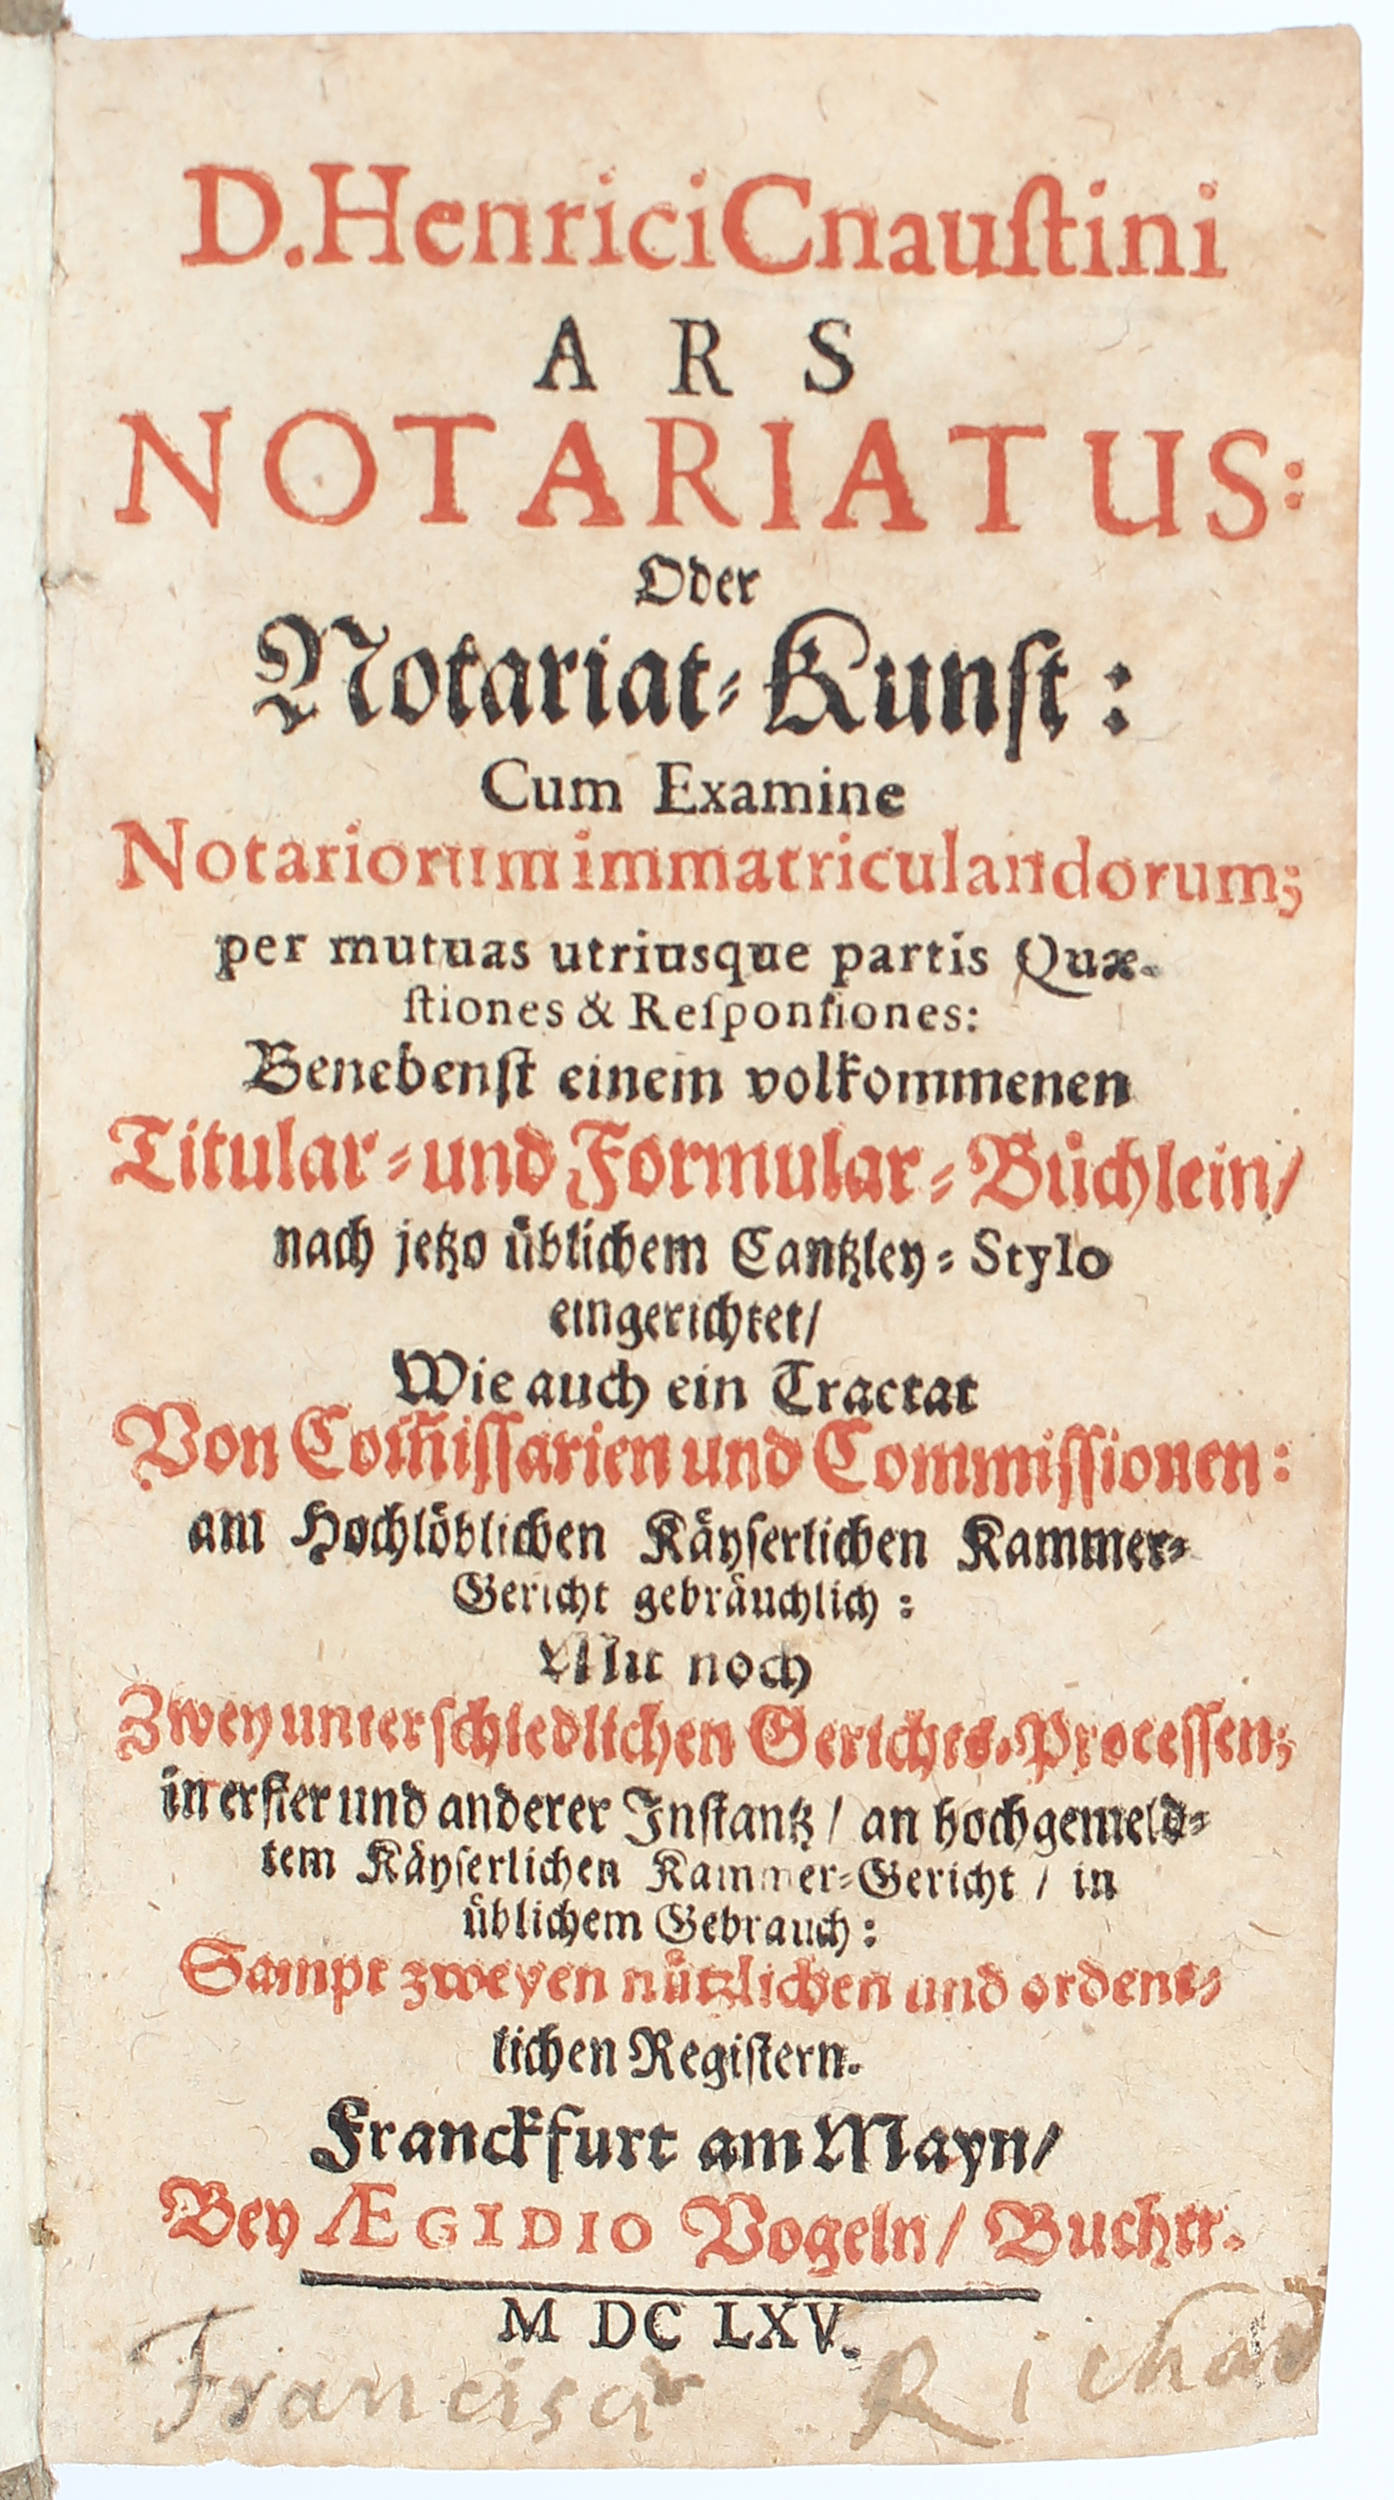 D. Henrici Cnauſtini
ARS
NOTARIATUS:
Oder
Notariat-Kunſt:
Cum Examine
Notariorum immatriculandorum;
per mutuas utriusque partis Quæ-
ſtiones & Reſponſiones:
Benebenſt einem volkommenen
Titular-und Formular-Büchlein/
nach jetzo üblichem Cantzley-Stylo
eingerichtet/
Wie auch ein Tractat
Von Com̃iſſarien und Commiſſionen:
am Hochlöblichen Käyſerlichen Kammer-
Gericht gebräuchlich:
Mit noch
Zwey unterſchiedlichen Gerichts-Proceſſen;
in erſter und anderer Inſtantz/ an hochgemeld-
tem Käyſerlichen Kammer-Gericht/ in
üblichem Gebrauch:
Sampt zweyen nützlichen und ordent-
lichen Regiſtern.
Franckfurt am Mayn/
Bey ÆGIDIO Vogeln/ Buchtr.
M DC LXV.